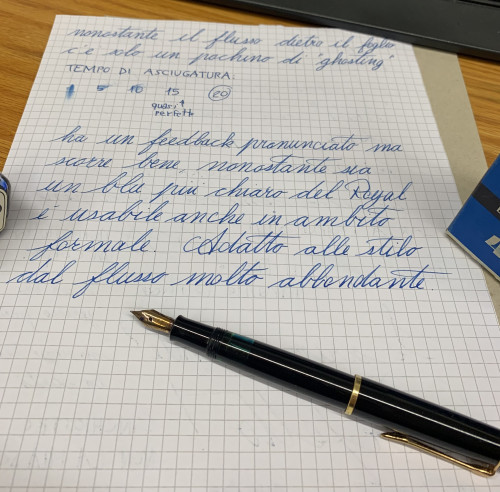 nonostante il flusso dietro il foglio
c'è solo un pochino di "ghosting"
TEMPO DI ASCIUGATURA.
1 5 10 15 20
quasi
perfetto
ha un feedback pronunciato ma
scorre bene nonostante sia
un blu più chiaro del Royal
è usabile anche in ambito
formale. Adatto alle stilo
dal flusso molto abbondante